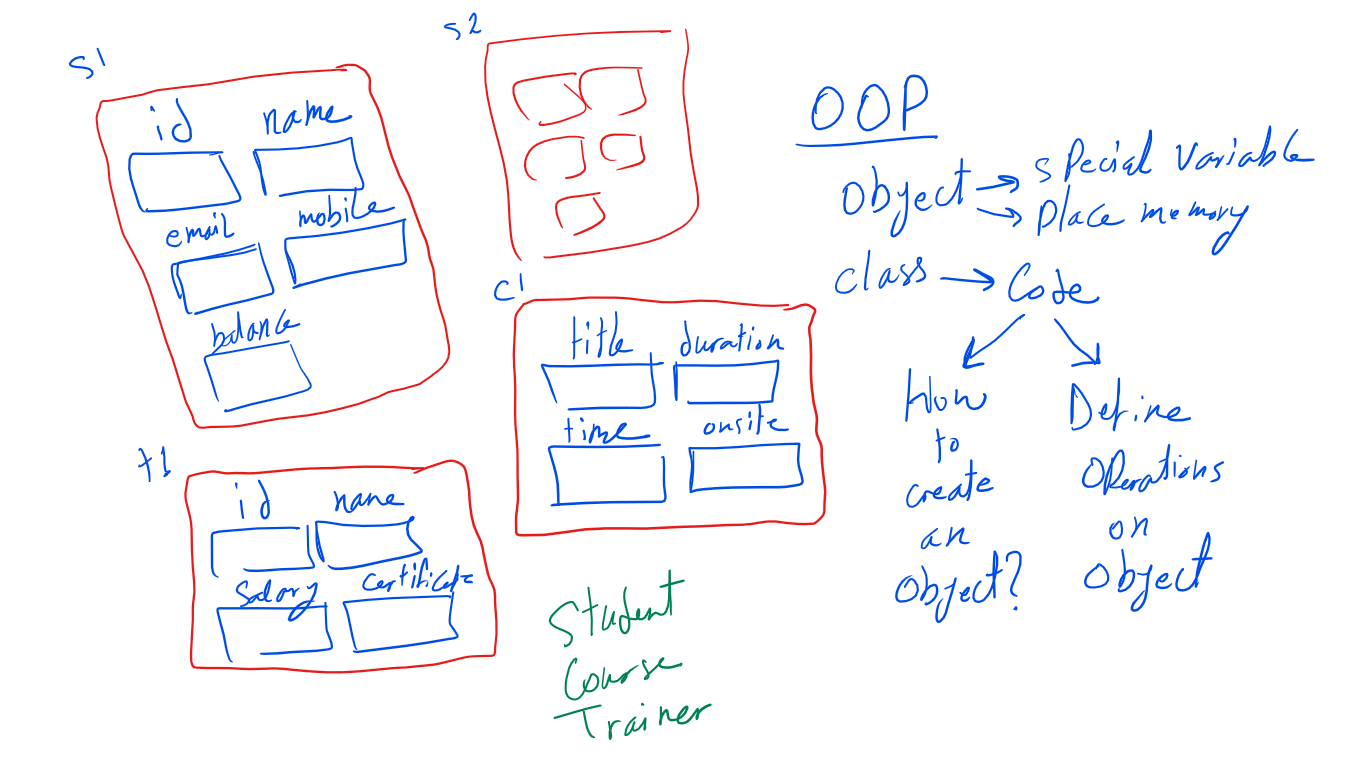 s1
id name
email mobile
balance
s2
c1
title duration
time onsite
t1
id name
salary certificate
Student
Course
Trainer
OOP
Object → special variable
→ place memory
class → Code
How
to
create
an
object?
Define
operations
on
object